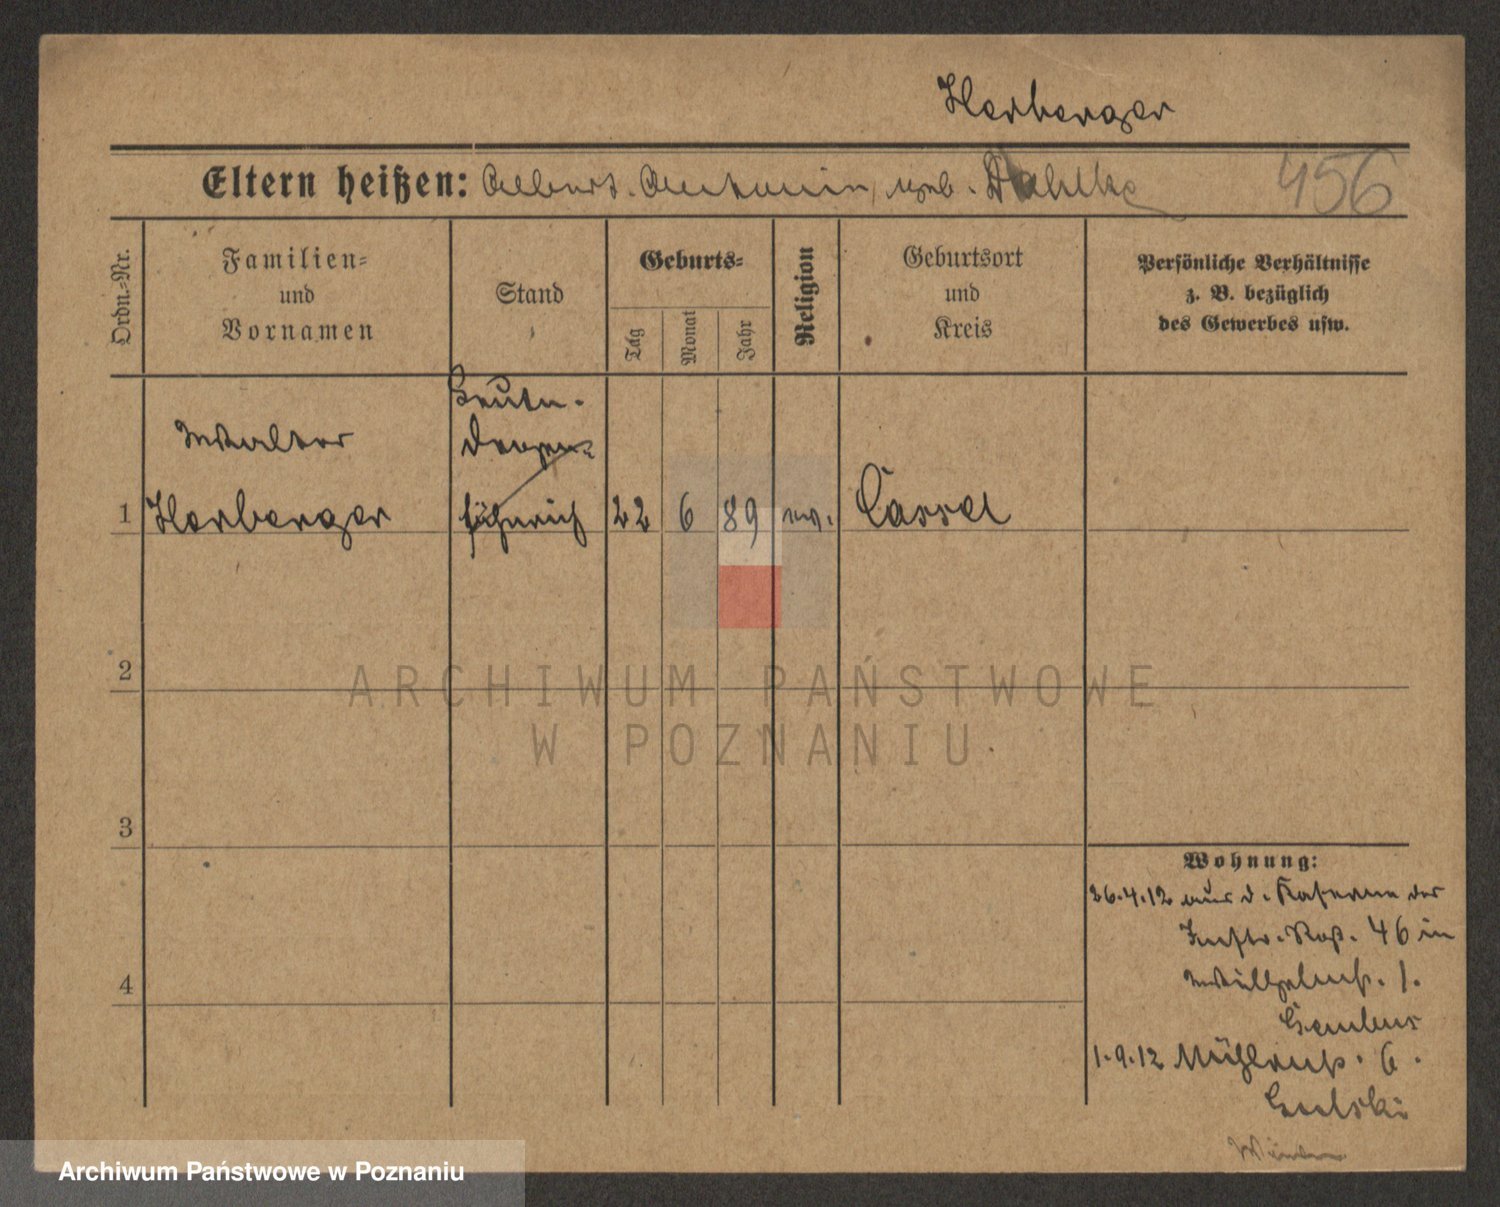 Herberger
Eltern heißen: Albert. Antonin, geb. Dahlke 456
Ordn.-Nr.
Familien-
und
Vornamen
Stand
Geburts-
Tag
Monat
Jahr
Religion
Geburtsort
und
Kreis
Persönliche Verhältnisse
z. B. bezüglich
des Gewerbes usw.
Leutn.
Walter Degen-
1 Herberger fähnrich 22 6 89 ev. Cassel
2
3
4
Wohnung:
26.4.12 aus d. Kaserne des
Inftr. Rgt. 46 in
Wilhelmst. 1.
1.9.12 Mühlenst. 6.
ARCHIWUM PAŃSTWOWE
W POZNANIU
Archiwum Państwowe w Poznaniu